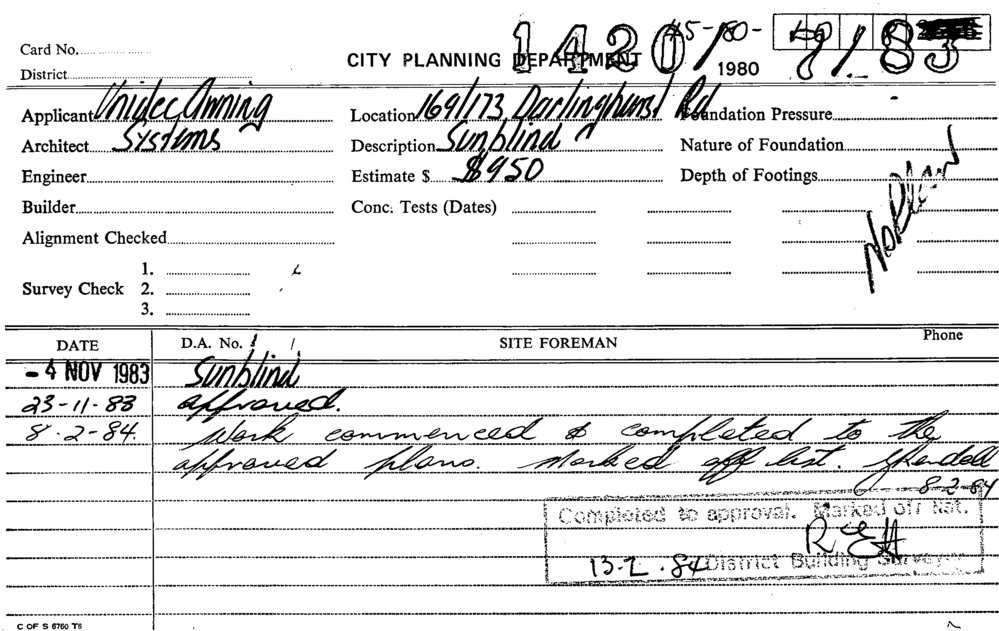 Card No.
CITY PLANNING DEPARTMENT
1420/
45-80-
1980
/83
District
Applicant Unidec Awning
Location 169/173 Darlinghurst Rd
Foundation Pressure
Architect Systems
Description Sunblind
Nature of Foundation
Engineer
Estimate $ $950
Depth of Footings
No Plan
Builder
Conc. Tests (Dates)
Alignment Checked
Survey Check
1.
2.
3.
DATE
D.A. No.
SITE FOREMAN
Phone
- 4 NOV 1983 Sunblind
23-11-83 approved.
8-2-84. Work commenced & completed to the
approved plans. Marked off list.
8-2-84
Completed to approval. Marked off list.
13-2-84 District Building Surveyor
C OF S 6760 T6